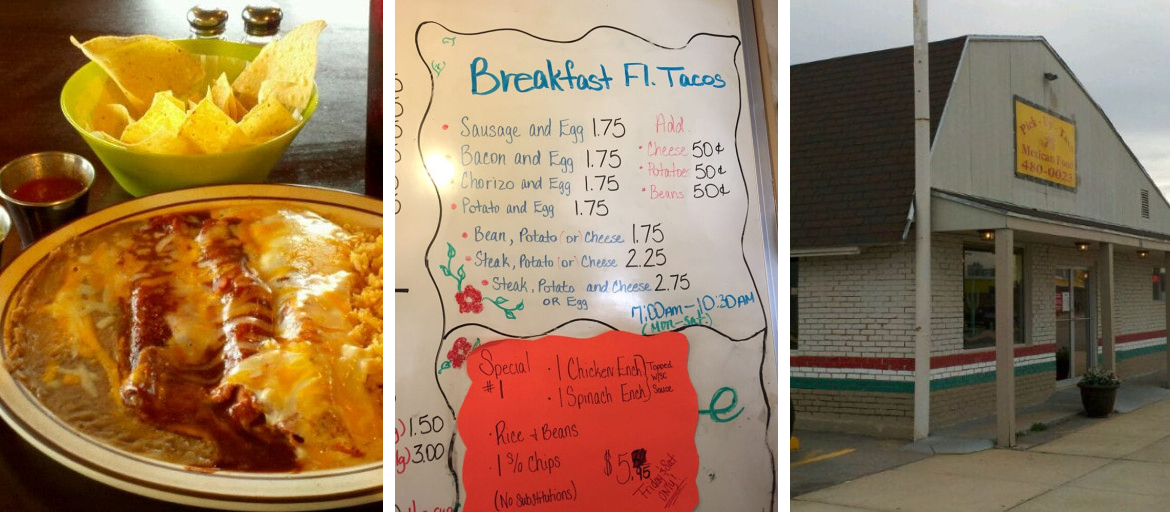 Breakfast Fl. Tacos
Sausage and Egg 1.75
Bacon and Egg 1.75
Chorizo and Egg 1.75
Potato and Egg 1.75
Bean, Potato (or) Cheese 1.75
Steak, Potato (or) Cheese 2.25
Steak, Potato and Cheese 2.75
OR Egg
Add
Cheese 50¢
Potatoes 50¢
Beans 50¢
7:00AM-10:30AM
(Mon-Sat)
Special
#1
1 Chicken Ench)
1 Spinach Ench)
Topped
w/SC
Sauce
Rice + Beans
1 % Chips
(No Substitutions)
$5.95
Friday & Sat
only
1.50
3.00
Pick-Up
Mexican Food
480-0025